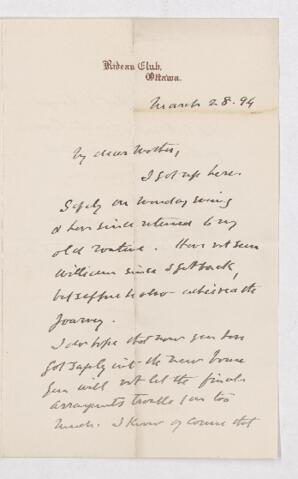 Rideau Club,
Ottawa.
March 28. 94
My dear Mother,
I got up here
Safely on Monday evening
& have since returned to my
old routine. Have not seen
William since I got back,
but suppose he also achieved the
journey.
I do hope that now you have
got safely into the new house
you will not let the final
arrangements trouble you too
much. I know of course that